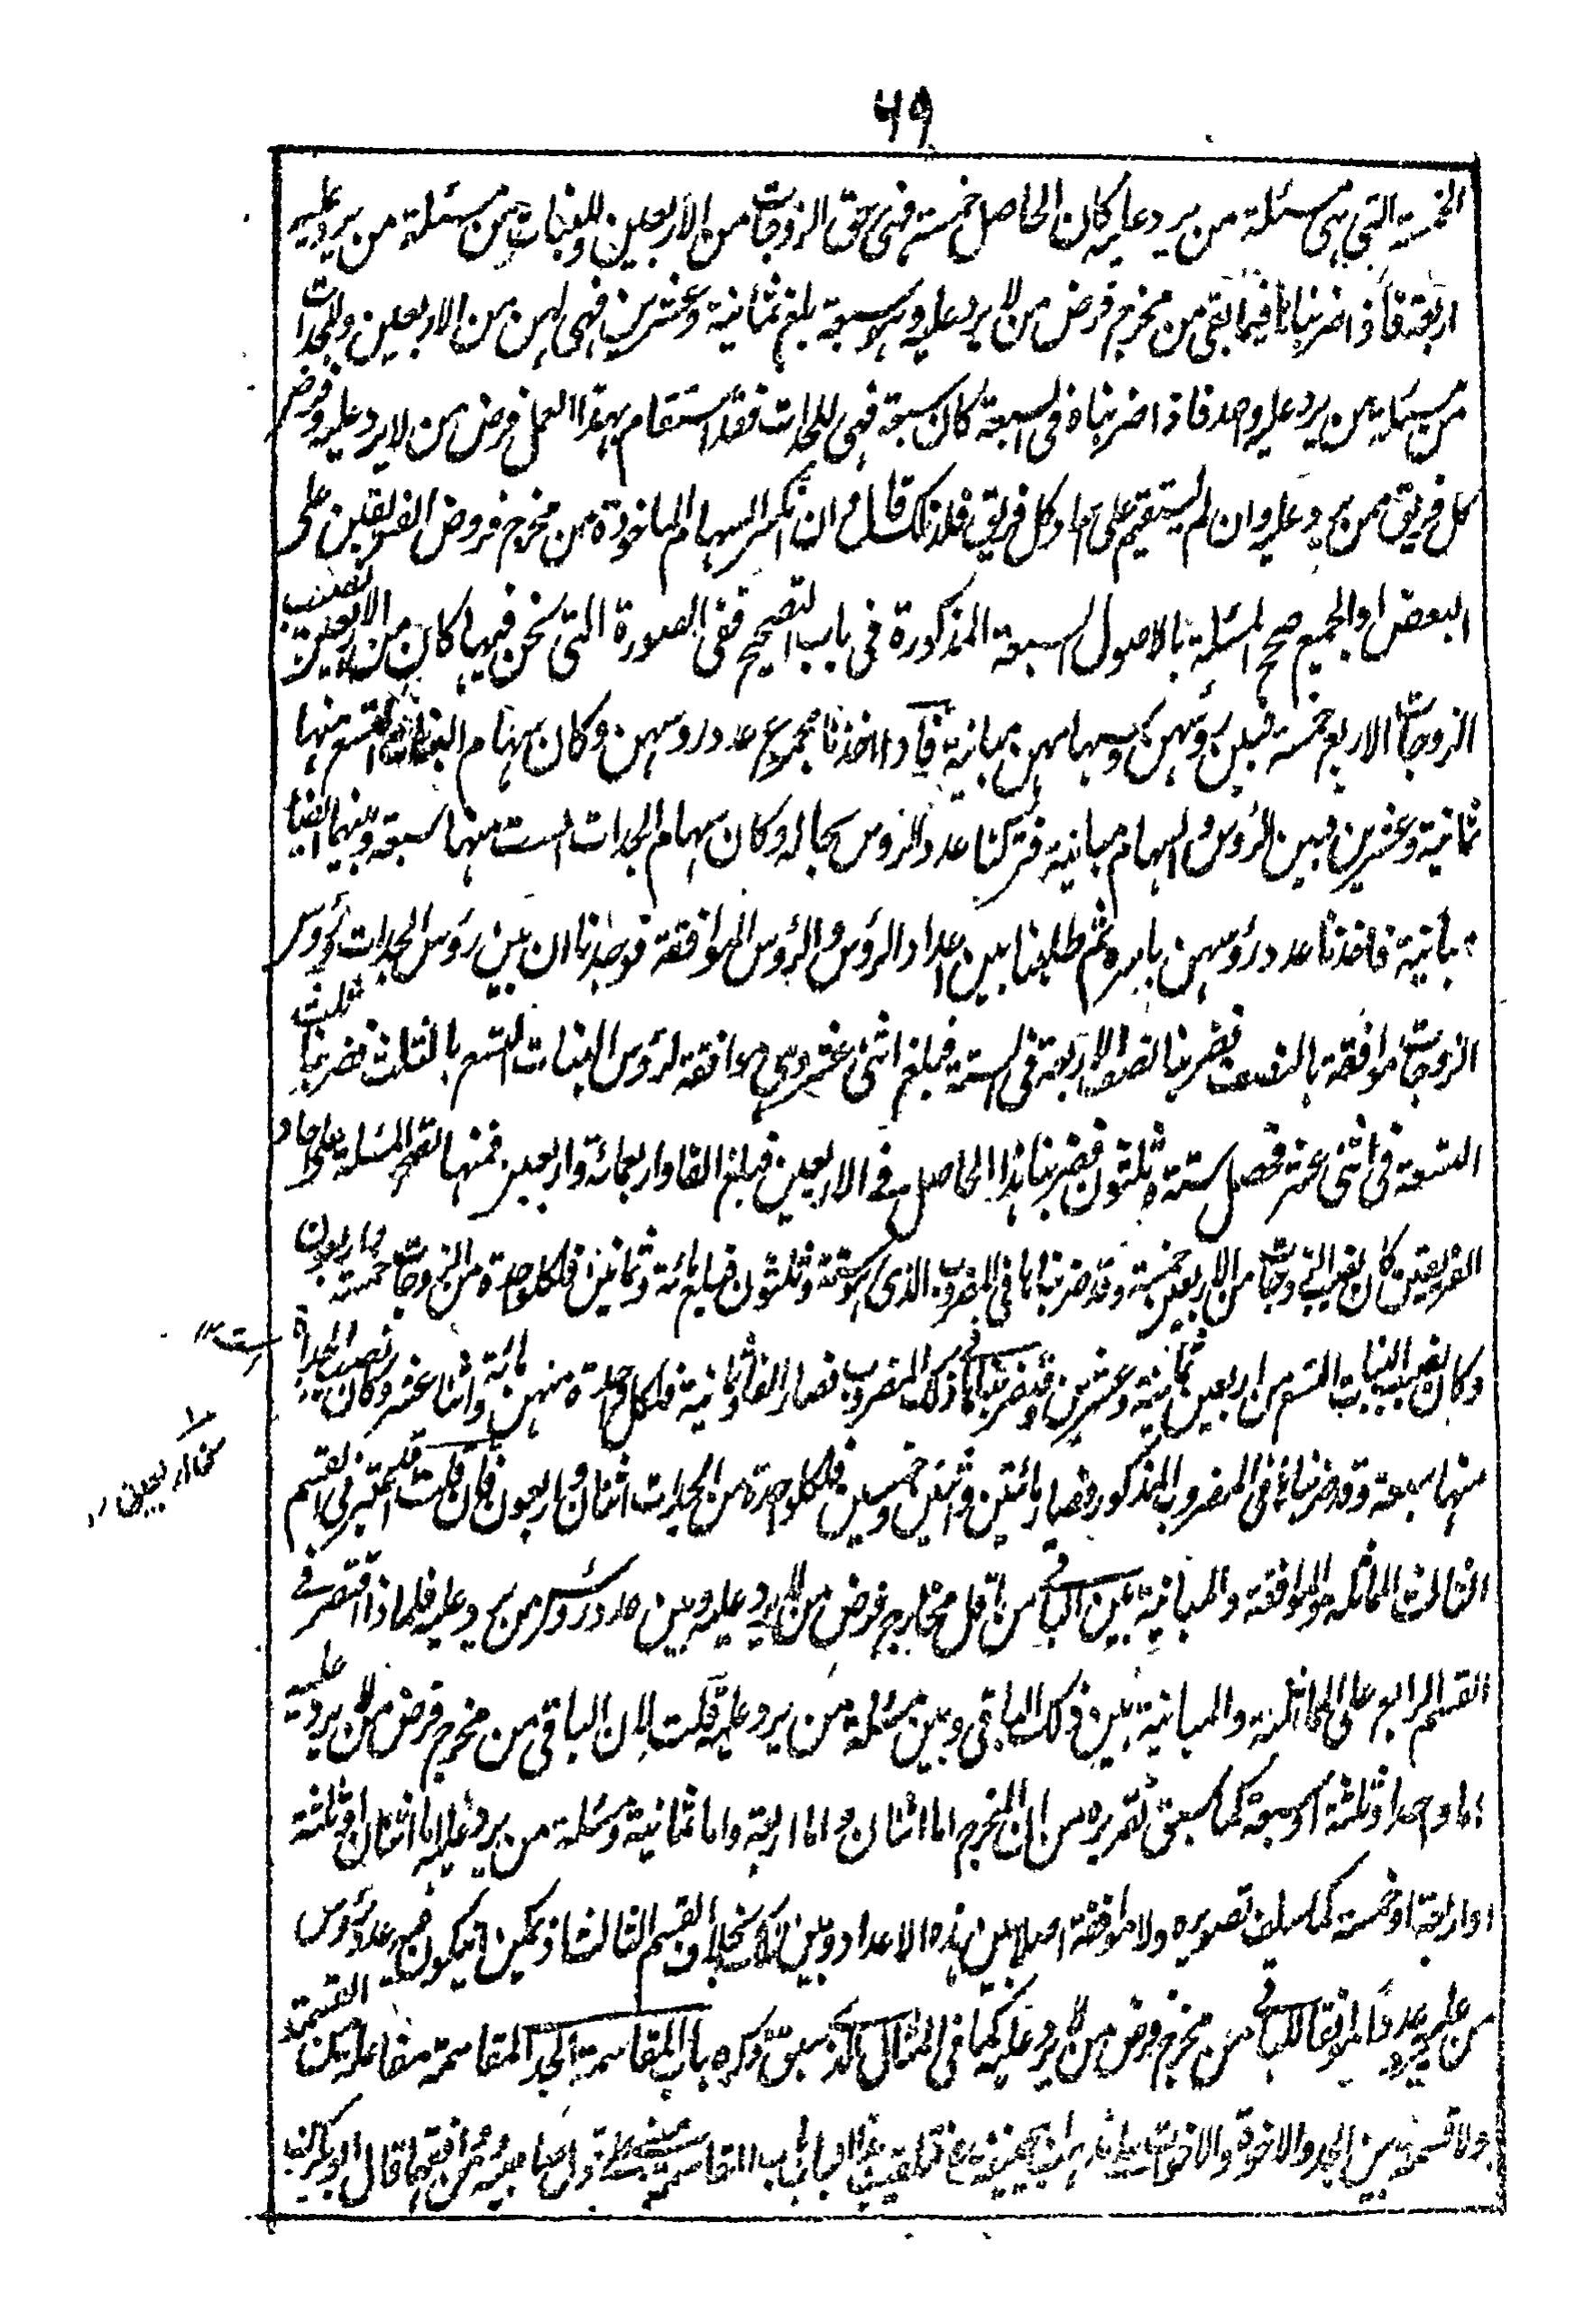 ٦٩
الخمسة التى هى مسئلة من يرد عليه كان الحاصل خمسة فهى حق الزوجات من الاربعين وللبنات من مسئلة من يرد عليه
اربعة فاذا ضربناها فيما بقى من مخرج فرض من لا يرد عليه وهو سبعة بلغ ثمانية وعشرين فهى لهن من الاربعين وللجدات
من مسئلة من يرد عليه واحد فاذا ضربناه فى السبعة كان سبعة فهى للجدات فقد استقام بهذا العمل فرض من لا يرد عليه وفرض
كل فريق ممن يرد عليه وان لم يستقيم على احاد كل فريق فلذلك قال وان انكسر السهام الماخوذة من مخرج فروض الفريقين على
البعض او الجميع صحح المسئلة بالاصول السبعة المذكورة فى باب التصحيح ففى الصورة التى نحن فيها كان من الاربعين نصيب
الزوجات الاربع خمسة فبين رؤسهن وسهامهن مباينة فاخذنا مجموع عدد روسهن وكان سهام البنات التسع منها
ثمانية وعشرين فبين الرؤس والسهام مباينة فتركنا عدد الرؤس بحاله وكان سهام الجدات الست منها سبعة وبينهما ايضا
مباينة فاخذنا عدد رؤسهن باسره ثم طلبنا بين اعداد الرؤس والرؤس الموافقة فوجدنا ان بين رؤس الجدات ورؤس
الزوجات موافقة بالنصف فضربنا نصف الاربعة فى الستة فبلغ اثنى عشر وهى موافقة لرؤس البنات التسع بالثلث فضربنا ثلث
التسعة فى اثنى عشر فحصل ستة وثلثون فضربنا هذا الحاصل فى الاربعين فبلغ الفا واربعمائة واربعين فمنها تصح المسئلة على احاد
الفريقين كان نصيب الزوجات من الاربعين خمسة وقد ضربناها فى المضروب الذى هو ستة وثلثون فبلغ مائة وثمانين فلكل واحدة من الزوجات خمسة واربعون
وكان نصيب البنات التسع من اربعين ثمانية وعشرين وقد ضربناها فى ذلك المضروب فصار الفا وثمانية فلكل واحدة منهن مائة واثنا عشر وكان نصيب الجدات
ست ١٢
منها سبعة وقد ضربناها فى المضروب المذكور فصار مائتين واثنين وخمسين فلكل واحدة من الجدات اثنان واربعون فان قلت قد اعتبر فى القسم
اے اربعين ١٢
الثالث المماثلة والموافقة والمباينة بين الباقى من اقل مخارج فرض من لا يرد عليه وبين عدد رؤس من يرد عليه فلماذا اقتصر فى
القسم الرابع على المماثلة والمباينة بين ذلك الباقى وبين مسئلة من يرد عليه قلت لان الباقى من مخرج فرض من لا يرد عليه
اما واحد او ثلثة او سبعة كما سبق تقريره من ان المخرج اما اثنان واما اربعة واما ثمانية ومسئلة من يرد عليه اما اثنان او ثلثة
او اربعة او خمسة كما سلف تصويره ولا موافقة اصلا بين هذه الاعداد وبين تلك بخلاف القسم الثالث اذ يمكن ان يكون فيه عدد رؤس
من يرد عليه عددا موافقا للباقى من مخرج فرض من لا يرد عليه كما فى المثال الذى سبق ذكره باب المقاسمة الجد المقاسمة مفاعلة من القسمة
ولا قسمة بين الجد والاخوة والاخوات